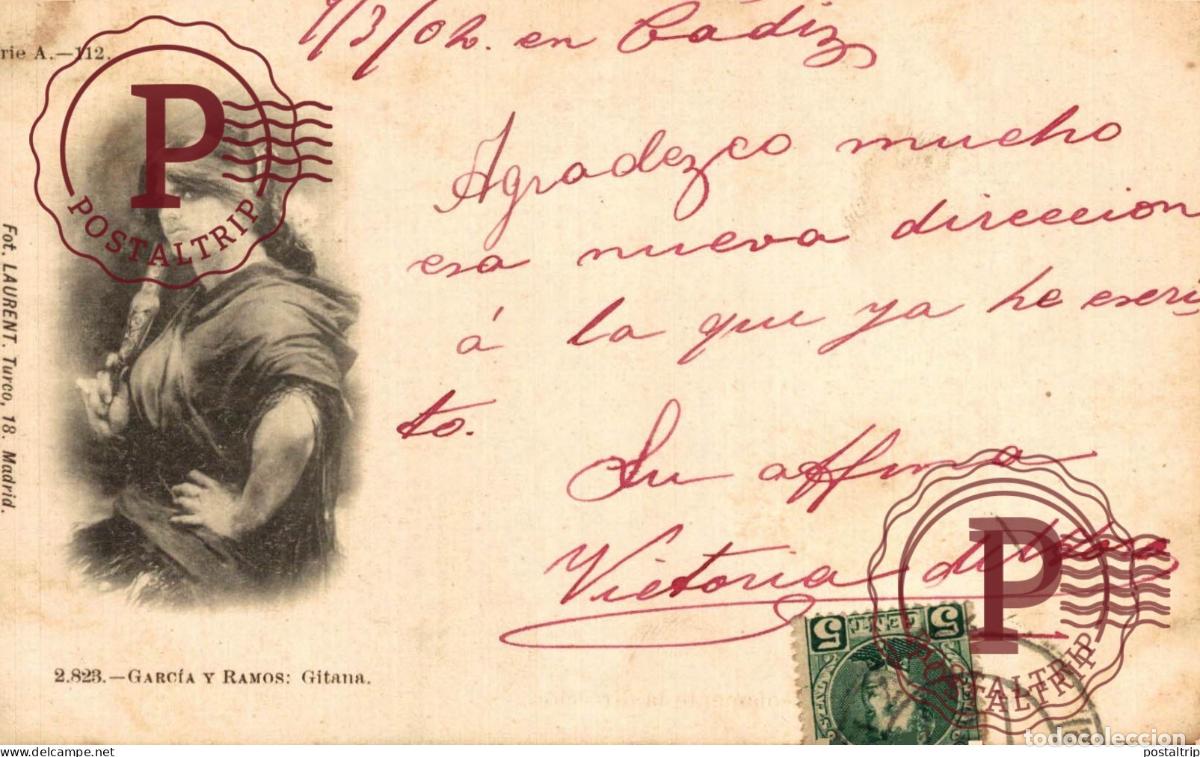 1/3/02. en Cádiz
rie A.—112.
P
POSTALTRIP
Agradezco mucho
esa nueva direccion
á la que ya he escri
to.
Su affma
Victoria
Fot. LAURENT. Turco, 18. Madrid.
2.823.—GARCÍA Y RAMOS: Gitana.
5 CENTS 5
P
POSTALTRIP
todocoleccion
https://www.delcampe.net
postaltrip